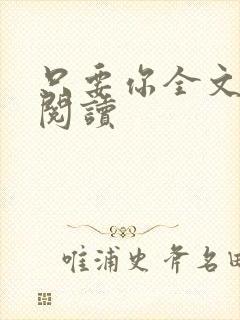 只要你全文
閱讀
唯浦史斧名